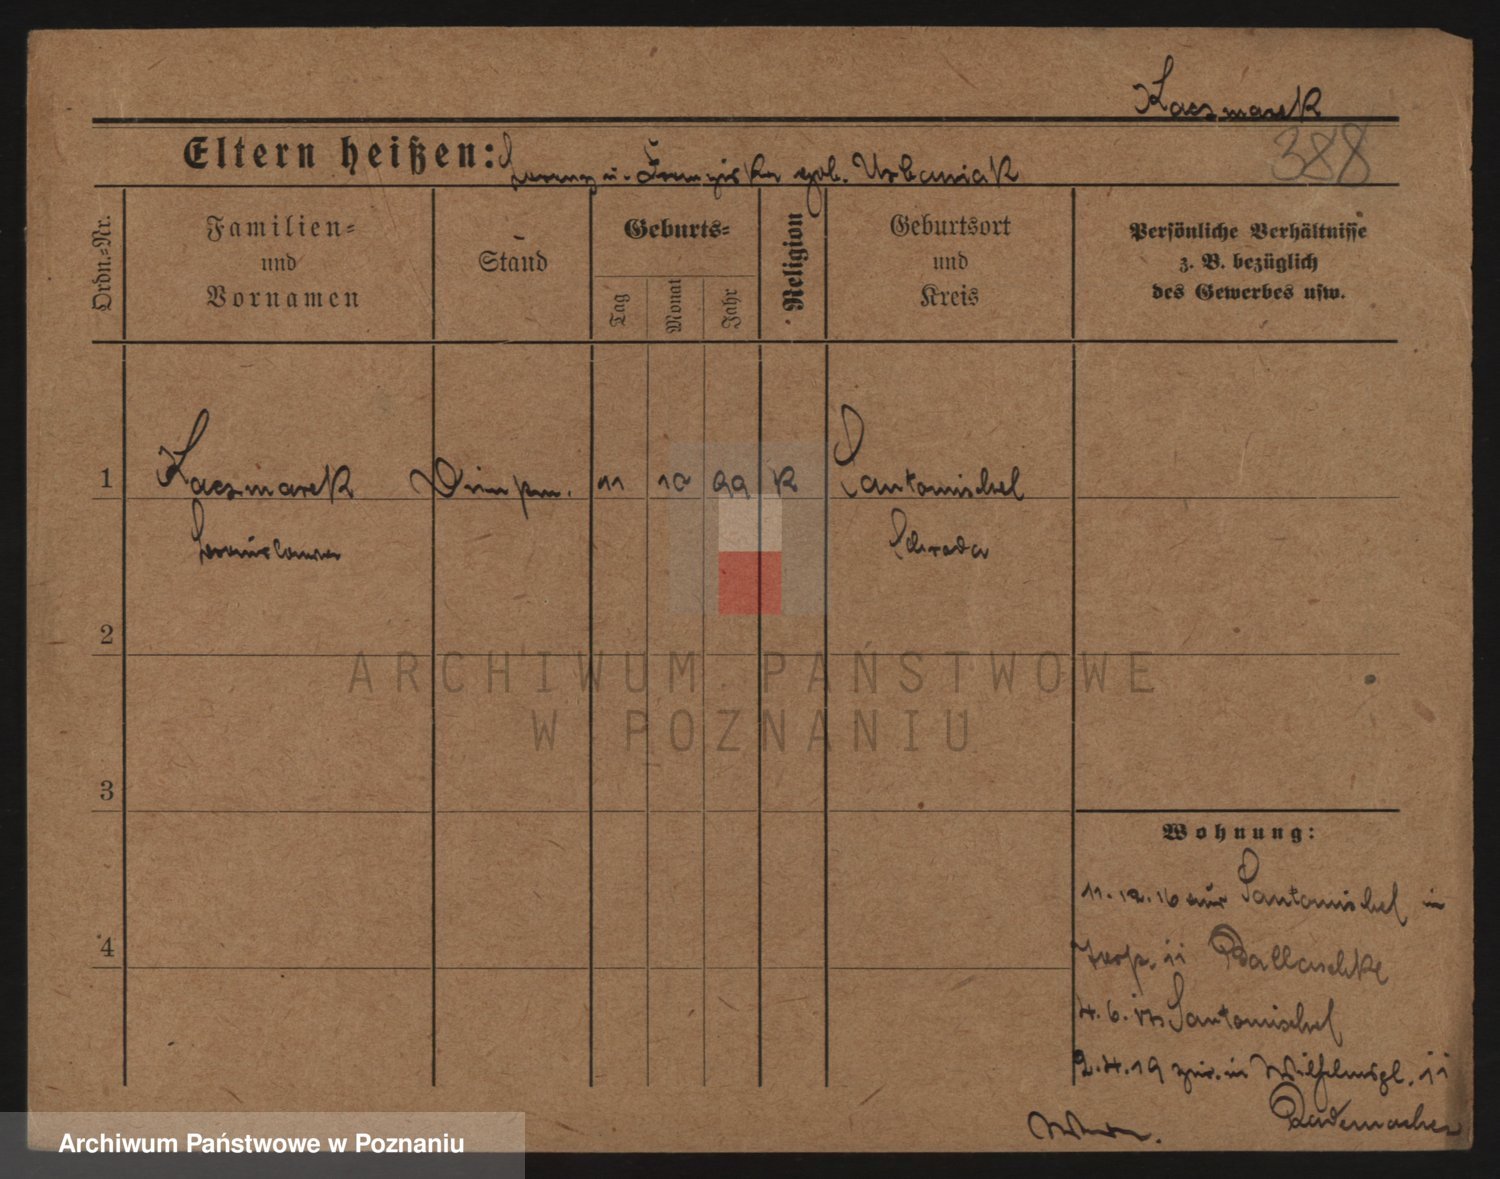 Kaczmarek
388
Eltern heißen: Lorenz u. Franziska geb. Urbaniak
Ordn.-Nr.
Familien-
und
Vornamen
Stand
Geburts-
Tag
Monat
Jahr
Religion
Geburtsort
und
Kreis
Persönliche Verhältnisse
z. B. bezüglich
des Gewerbes usw.
1 Kaczmarek 11 10 99 K Santomischel
Schroda
2
3
4
Wohnung:
11.12.16 aus Santomischel in
11 Ballaschke
4.6. Santomischel
2.4.19 zur. in Wilhelmspl. 11
Rademacher
ARCHIWUM PAŃSTWOWE
W POZNANIU
Archiwum Państwowe w Poznaniu